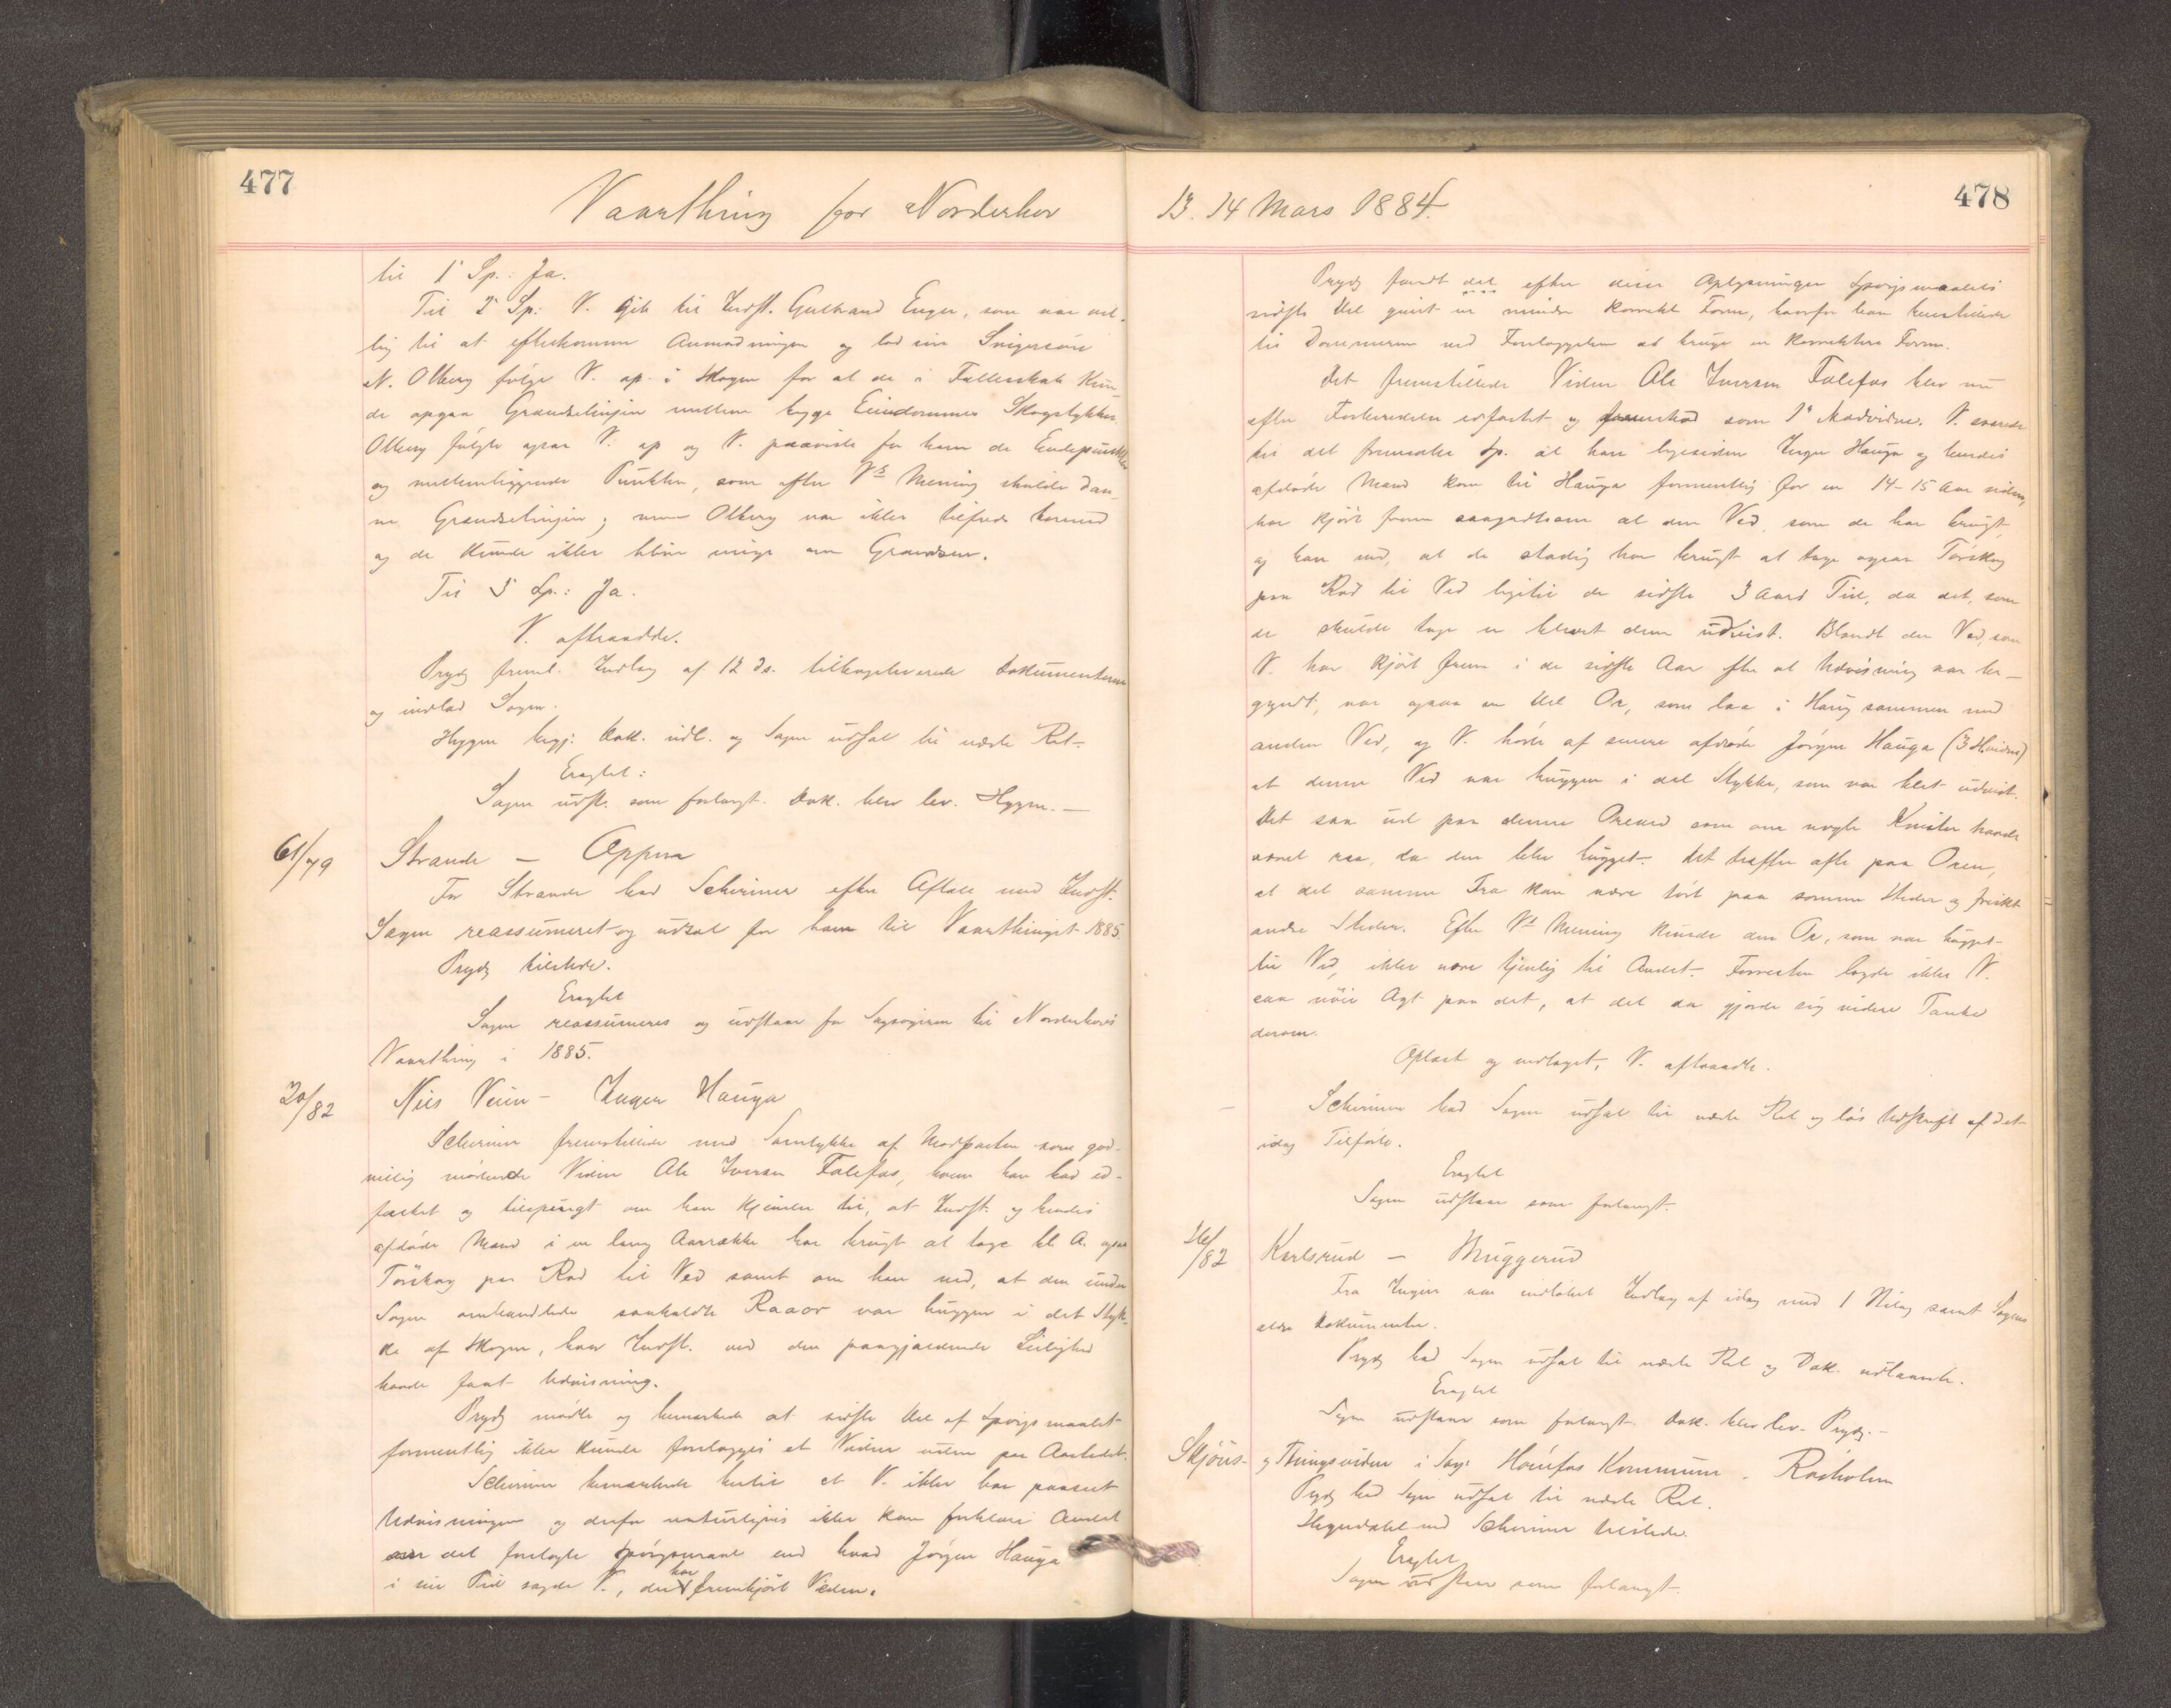 477
Vaarthing for Norderhov
til 1' Sp.: Ja.
Til 2' Sp: V. gik til Indst. Gulbrand Enger, som var vil-
lig til at efterkomme Anmodningen og lod sin Svigersøn
N. Olberg følge V. op i Skogen for at de i Fællesskab kun-
de opgaa Grændselinjen mellem begge Eiendommes Skogstykker.
Olberg fulgte ogsaa V. op og V. paaviste for ham de Endepunkter
og mellemliggende Punkter, som efter Vs Mening skulde dan-
ne Grændselinjen; men Olberg var ikke tilfreds hermed
og de kunde ikke blive enige om Grændsen.
Til 3' Sp.: Ja.
V. aftraadte.
Prydz freml. Indlæg af 12 ds. tilbageleverede Dokumenterne
og indlod Sagen.
Hygen begj. Dok. udl. og Sagen udsat til næste Ret.
Eragtet:
Sagen udst. som forlangt. Dok. blev lev. Hygen. —
61/79 Strande — Oppen
For Strande bad Scheriner efter Aftale med Indst.
Sagen reassumeret og udsat for ham til Vaarthinget 1885.
Prydz tilstede.
Eragtet
Sagen reassumeres og udstaar for Sagsøgeren til Norderhovs
Vaarthing i 1885.
20/82 Nils Veien — Inger Hauga
Scheriner fremstillede med Samtykke af Modparten som god-
villig mødende Vidne Ole Iversen Falefos, hvem han bad ed-
fæstet og tilspurgt om han kjender til, at Indst. og hendes
afdøde Mand i en lang Aarrække har brugt at tage bl. A. ogsaa
Tørskog paa Rod til Ved samt om han ved, at den under
Sagen omhandlede saakaldte Raaor var huggen i det Styk-
ke af Skogen, hvor Indst. ved den paagjældende Leilighed
havde faat Udvisning.
Prydz mødte og bemærkede at sidste Del af Spørgsmaalet
formentlig ikke kunde forelægges et Vidne uden paa Aastedet.
Scheriner bemærkede hertil at V. ikke har passeet
Udvisningen og derfor naturligvis ikke kan forklare Andet
om det forelagte Spørgsmaal end hvad Jørgen Hauga
i sin Tid sagde V., der har fremkjørt Veden.
478
13. 14 Mars 1884.
Prydz fandt det efter disse Oplysninger Spørgsmaalets
sidste Del givet en mindre korrekt Form, hvorfor han henstillede
til Dommeren ved Forelæggelsen at bruge en korrektere Form.
Det fremstillede Vidne Ole Iversen Falefos blev nu
efter Forberedelse edfæstet og fremstod som 1' Modvidne. V. svarede
til det fremsatte Sp. at han ligesiden Inger Hauga og hendes
afdøde Mand kom til Hauga formentlig for en 14-15 Aar siden,
har kjørt frem saagodtsom al den Ved, som de har brugt,
og han ved, at de stadig har brugt at tage ogsaa Tørskog
paa Rod til Ved ligetil de sidste 3 Aars Tid, da det, som
de skulde tage er blevet dem udvist. Blandt den Ved, som
V. har kjørt frem i de sidste Aar efter at Udvisning var be-
gyndt, var ogsaa en Del Or, som laa i Haug sammen med
anden Ved, og V. hørte af senere afdøde Jørgen Hauga
at denne Ved var huggen i det Stykke, som var blet udvist.
Det saa ud paa denne Oreved som om nogle Kvister havde
været raa, da den blev hugget. Det træffer ofte paa Oren,
at det samme Træ kan være tørt paa somme Steder og friskt
andre Steder. Efter Vs Mening kunde den Or, som var hugget
til Ved, ikke være tjenlig til Andet. Forresten lagde ikke V.
saa nøie Agt paa det, at det da gjorde sig videre Tanke
derom.
Oplæst og vedtaget, V. aftraadte.
Scheriner bad Sagen udsat til næste Ret og løs Udskrift af det
idag Tilførte.
Eragtet
Sagen udstaar som forlangt.
26/82 Karlsrud — Muggerud
Fra Enger var indløbet Indlæg af idag med 1 Bilag samt Sagens
ældre Dokumenter.
Prydz bad Sagen udsat til næste Ret og Dok. udlaante.
Eragtet
Sagen udstaar som forlangt. Dok. blev lev. Prydz. —
Skjøns- og Thingsvidne i Sag: Hønefos Kommune - Radholm
Prydz bad Sagen udsat til næste Ret.
ved Scheriner tilstede.
Eragtet
Sagen udstaar som forlangt.